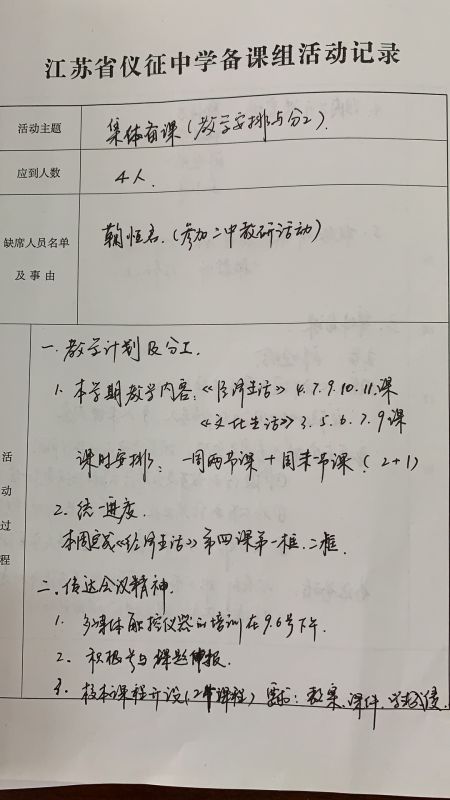 江苏省仪征中学备课组活动记录
活动主题 集体备课(教学安排与分工).
应到人数 4人.
缺席人员名单及事由 鞠恒君.(参加二中教研活动)
活动过程
一.教学计划及分工.
1.本学期教学内容:《经济生活》4.7.9.10.11.课
《文化生活》3.5.6.7.9课
课时安排:一周两节课+周末一节课(2+1)
2.统一进度.
本周完成《经济生活》第四课第一框.二框.
二.传达会议精神.
1.多媒体触控仪器的培训在9.6号下午.
2.积极参与课题申报.
3.校本课程开设(课程)要求:教案.课件.学成绩.